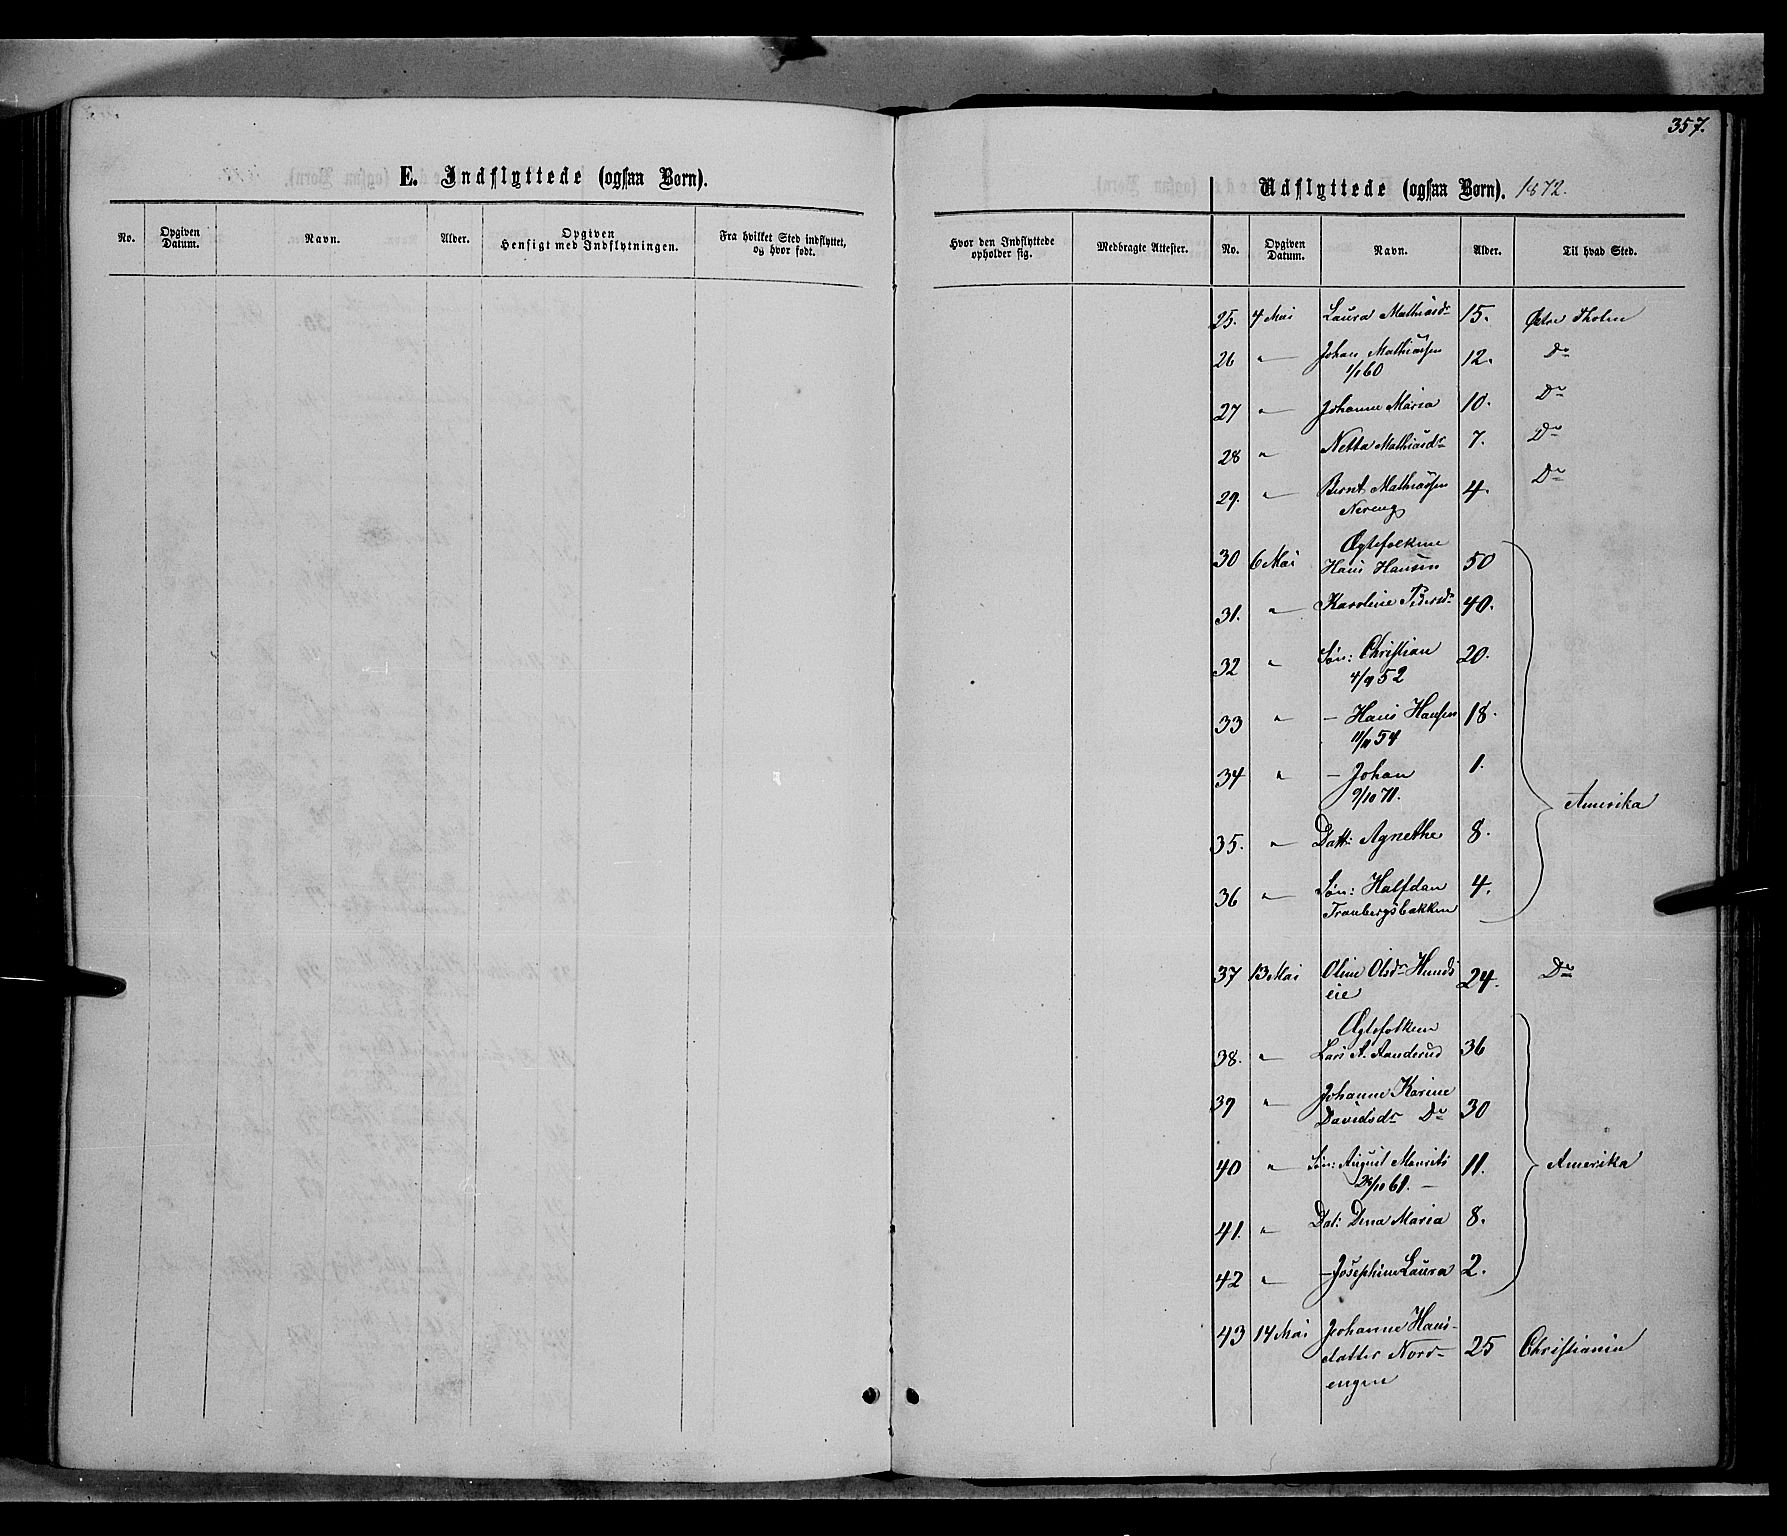 357.
E. Indflyttede (ogsaa Børn).
No.
Opgiven Datum.
Navn.
Alder.
Opgiven Hensigt med Indflytningen.
Fra hvilket Sted indflyttet, og hvor født.
Udflyttede (ogsaa Børn). 1872.
Hvor den Indflyttede opholder sig.
Medbragte Attester.
No.
Opgiven Datum.
Navn.
Alder.
Til hvad Sted.
25. 4 Mai Laura Mathiasdr 15. Østre Thoten
26 " Johan Mathiassen 12. Do
1/1 60
27 " Johanne Maria 10. Do
28 " Netta Mathiasdr 7. Do
29. " Bernt Mathiassen 4. Do
Nereng
Ægtefolkene
30 6 Mai Hans Hansen 50
31. " Karoline Pedersdr 40.
32 " Søn: Christian 20.
4/9 52
33 " - Hans Hansen 18.
11/11 54
34 " - Johan 1.
9/10 71.
Amerika
35. " Datt: Agnethe 8.
36 " Søn: Halfdan 4.
Tranbergsbakken
37 13 Mai Oline Olsdr Hunds 24. Do
eie
Ægtefolkene
38. " Lars A. Aanderud 36
39 " Johanne Karine
Davidsdr Do 30
40 " Søn: August Mauritz 11. Amerika
24/10 61. -
41. " Dat: Dina Maria 8.
42 " - Josephine Laura 2.
43 14 Mai Johanne Hans-
datter Nord- 25 Christiania
engen